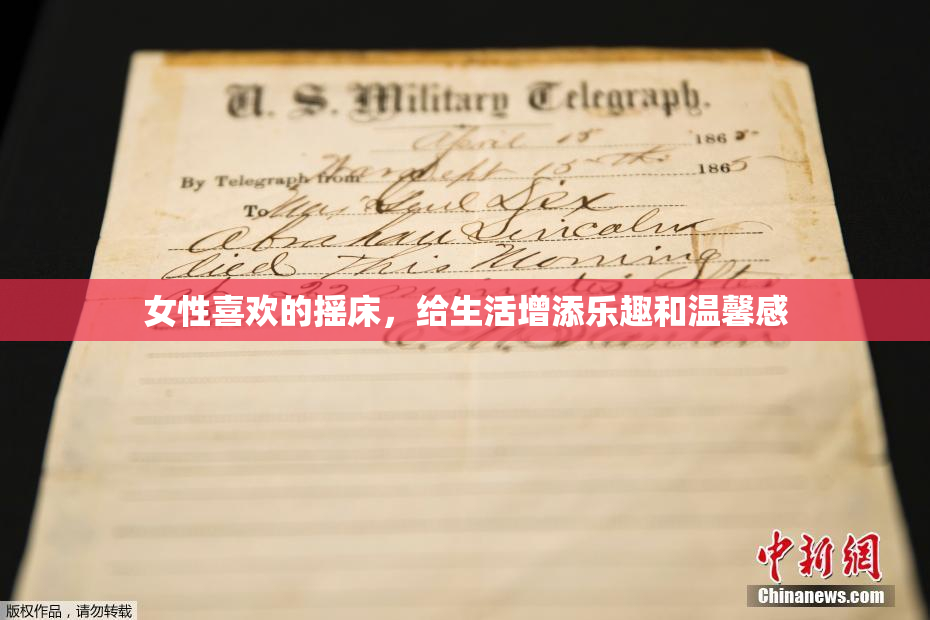 U. S. Military Telegraph.
April 15 1865.
By Telegraph from War Dept 15th 1865
To Maj Genl Dix
Abraham Lincoln
died This Morning
at 22 minutes after
女性喜欢的摇床，给生活增添乐趣和温馨感
E. M. Stanton
中新网
Chinanews.com
版权作品，请勿转载